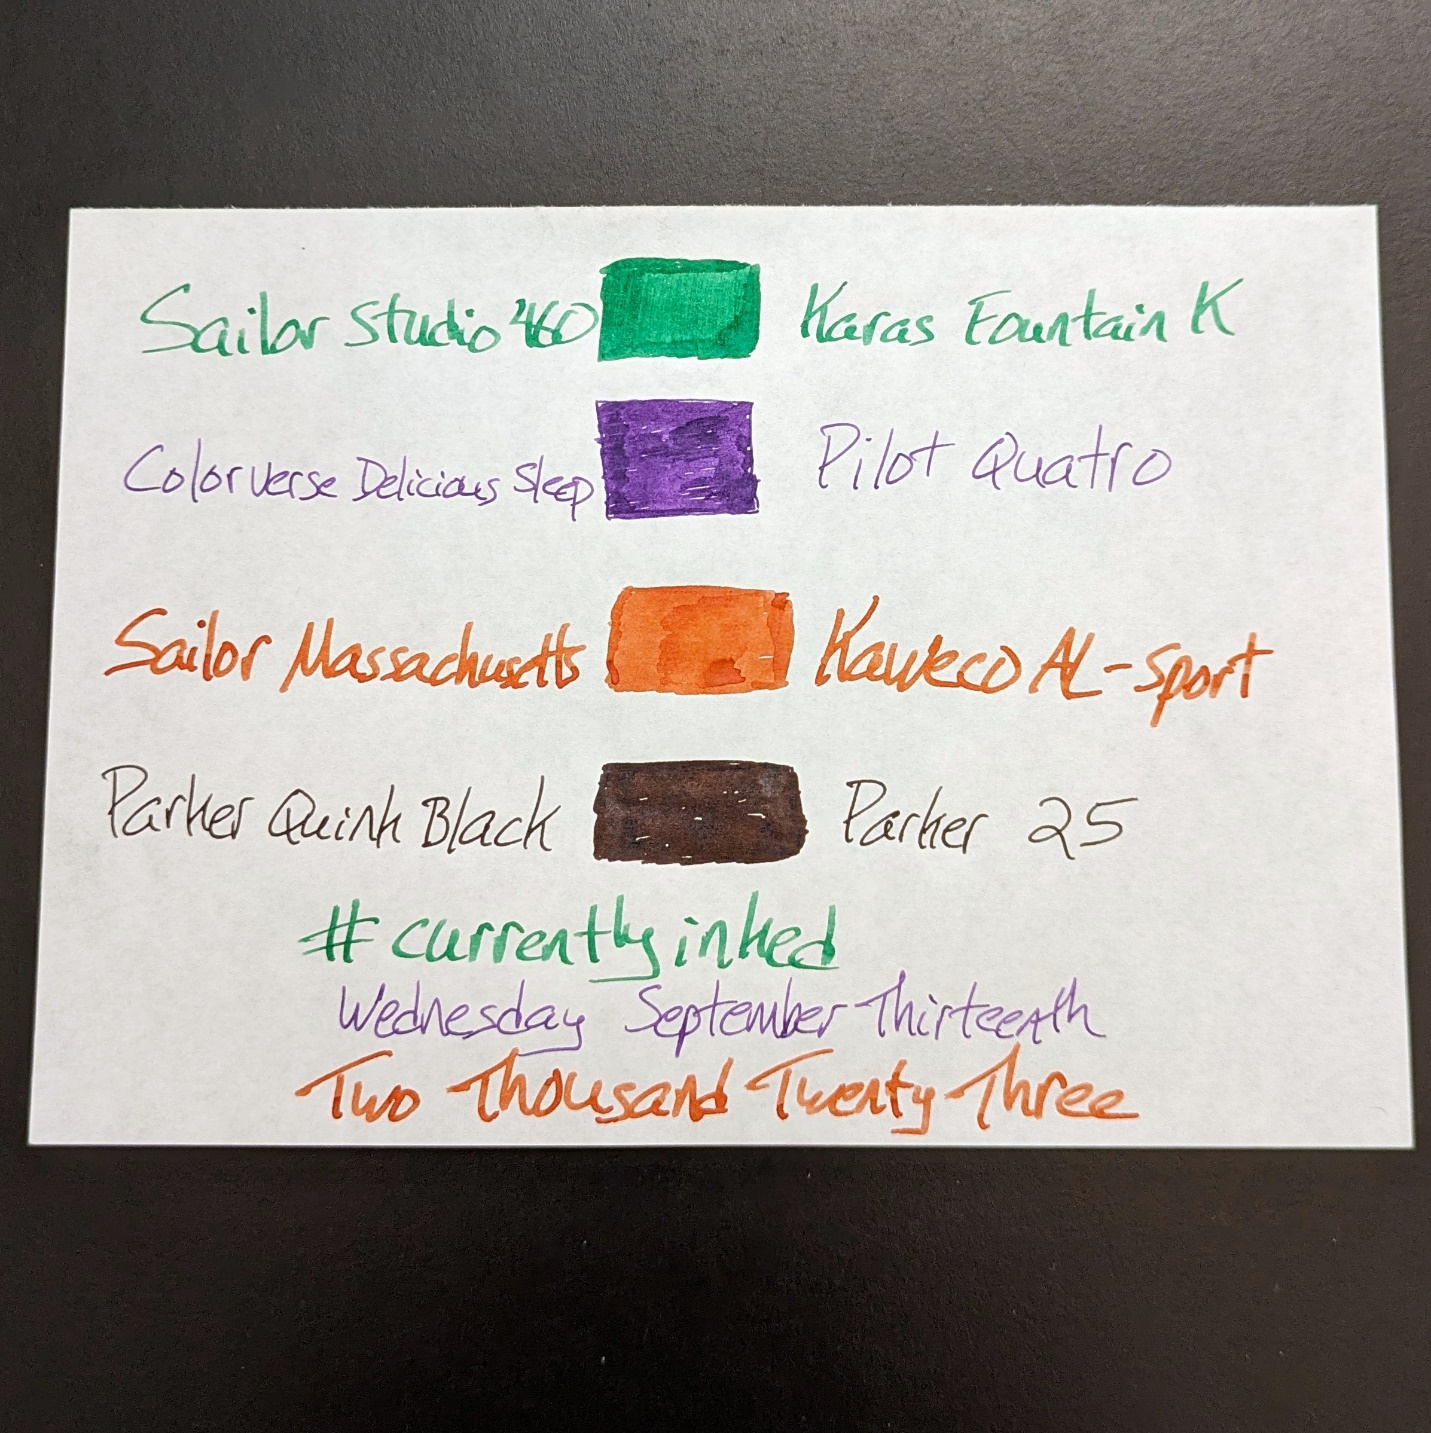 Sailor Studio 460 Karas Fountain K
Colorverse Delicious Sleep Pilot Quatro
Sailor Massachusetts Kaweco AL-Sport
Parker Quink Black Parker 25
#currentlyinked
Wednesday September Thirteenth
Two Thousand Twenty Three